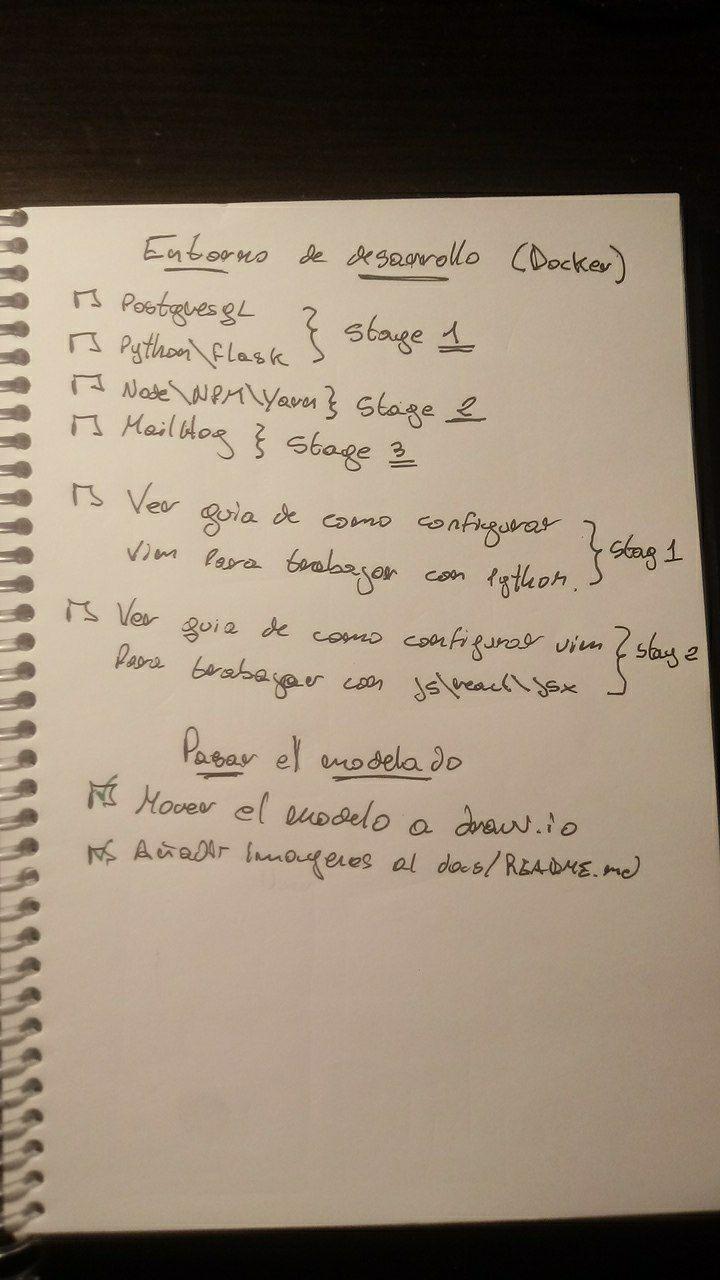 Entorno de desarrollo (Docker)
PostgresqL
Python\flask } Stage 1
Node\NPM\Yarn } Stage 2
MailHog } Stage 3
Ver guia de como configurar
vim para trabajar con Python. } Stag 1
Ver guia de como configurar vim
Para trabajar con js\react\jsx } Stag 2
Pasar el modelado
Mover el modelo a draw.io
Añadir imagenes al docs/README.md